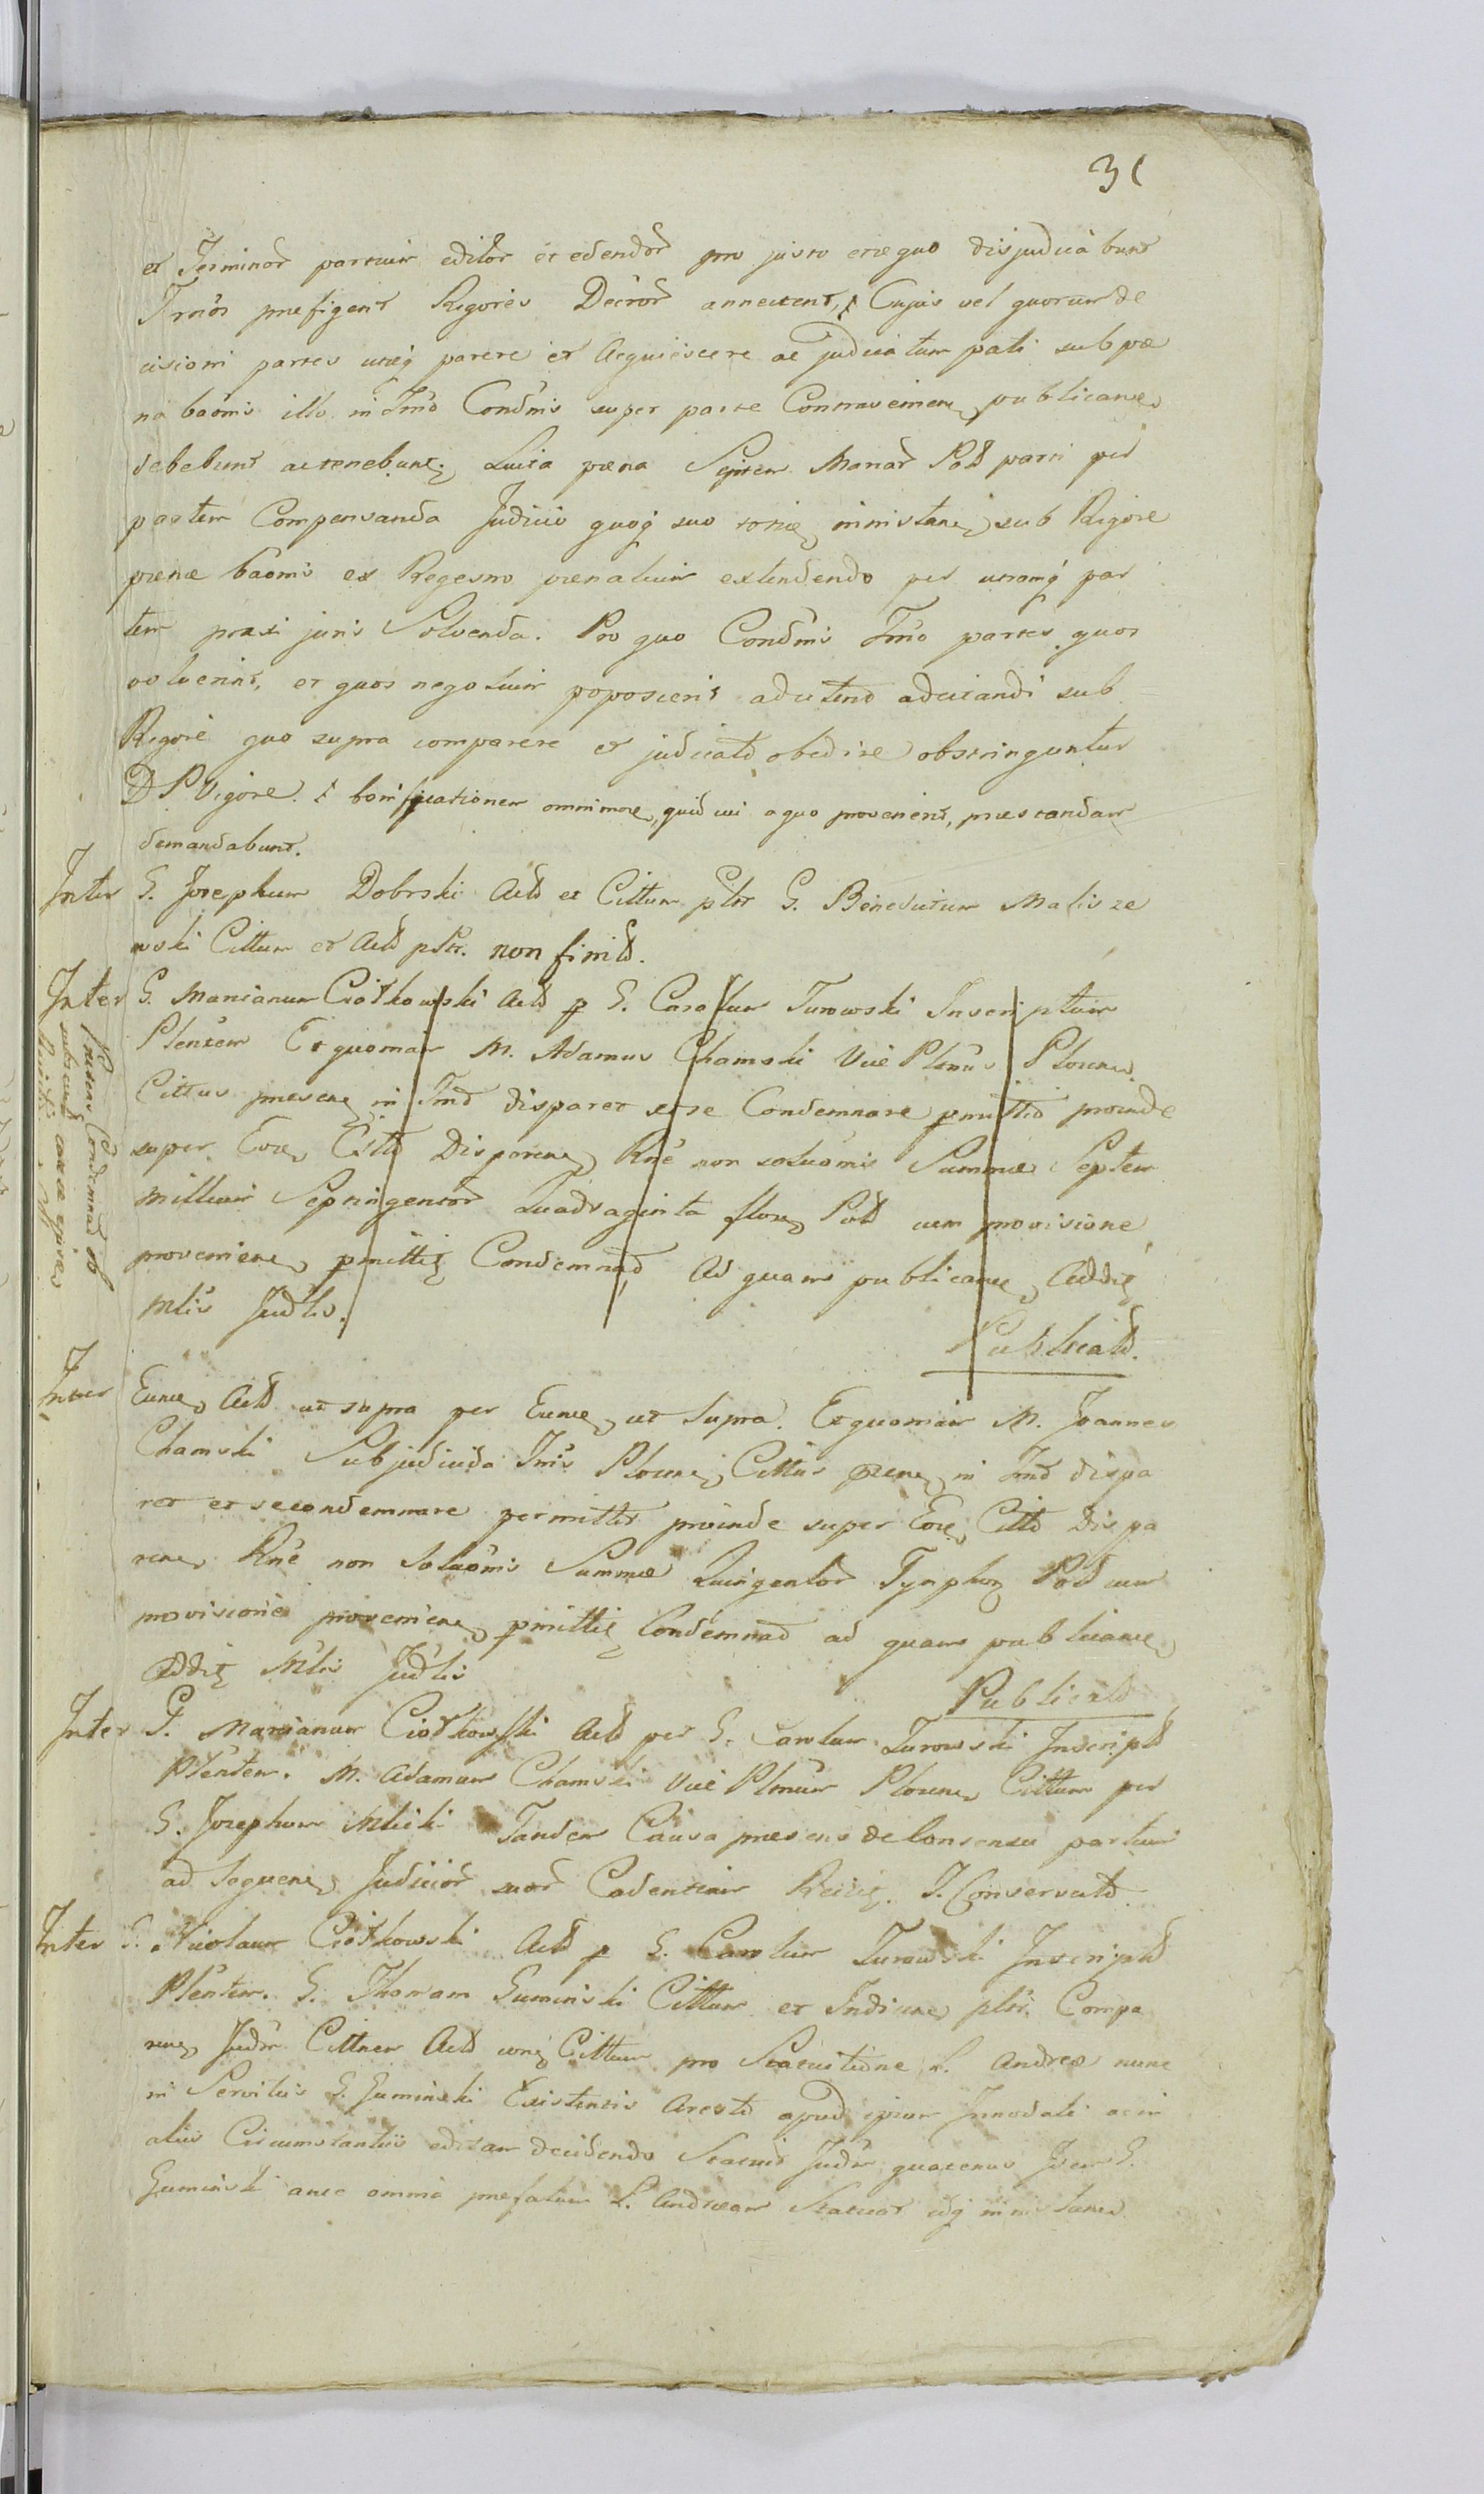 31
et Terminor partium editor et edendor pro justo et æquo disjudicabunt
Trmos prefigent Rigores Decror annectent, Cujus vel quorum de
cisioni partes utræq parere et Acquiescere ac judicatum pati sub pœ
na baomis illo in Tmo Condmis super parte Contravenien publicane
debebunt ac tenebunt Luita pœna Septem Marcar Pold parti per
partem Compensanda Judicio quoq suo ministane sub Rigore
pœnæ baomis ex Regestro pœnalium extendendo per utramq par
tem praxi juris Solvenda. Pro quo Condmis Tmo partes quos
voluerint, et quos negotium poposcerit adcitand adcitandi sub
Rigore quo supra comparere et judicato obedire obstringuntur
D P Vigore. bonificationem omnimode, quid cui a quo provenerit, præstandam
demandabunt.
Inter G. Josephum Dobrski Actd et Cittum pltr G. Benedictum Malisze
wski Cittum et Actd pltr. non finitd.
Inter G. Marianum Ciołkowski Actd p G. Carolum Turowski Inscriptum
Plentem Et quoniam M. Adamus Chamski Vice Plenus Plocen
Cittus presene in Tmd disparet et se Condemnare pmittid proinde
super Eoe Citto Disparene Rne non solvomis Summæ Septem
millium Septingentor Quadraginta floren Pold cum provisione
proveniene pmittit Condemnad Ad quam publicane Addit
Mltis Judlis.
Publicatd.
Præsens Condemnad ob
Inter Eune Actd ut supra per Eune ut supra. Et quoniam M. Joannes
Chamski Subjudicida Tris Plocen Cittus prene in Tmd dispa
ret et se condemnare permittit proinde super Eoe Citto Dispa
rene Rne non Solvomis Summæ Quingentor Tynphon Pold cum
provisione proveniene pmittit Condemnad ad quam publicane
addit Mltis Judlis
Publicatd
Inter G. Marianum Ciołkowski Actd per G. Carolum Turowski Inscriptd
Plentem. M. Adamum Chamski Vice Plenum Plocene Cittum per
G. Josephum Mlicki Tandem Causa presens de Consensu partium
ad Sequene Judicior suor Cadentiam Reiicit. T. Conservatd
Inter G. Nicolaum Ciołkowski Actd p G. Carolum Turowski Inscriptd
Plentem. G. Thomam Guminski Cittum et Indicene pltr. Compa
rene Judm Cittnem Actd Cittum pro Statuitione L. Andreæ nunc
in Servitiis G. Guminski Existentis Arestd apud ipsum Innodati ac in
aliis Circumstantiis editam decidendo Statuit Judm quatenus Idem G.
Guminski ante omnia prefatum L. Andream Statuat idq ministane